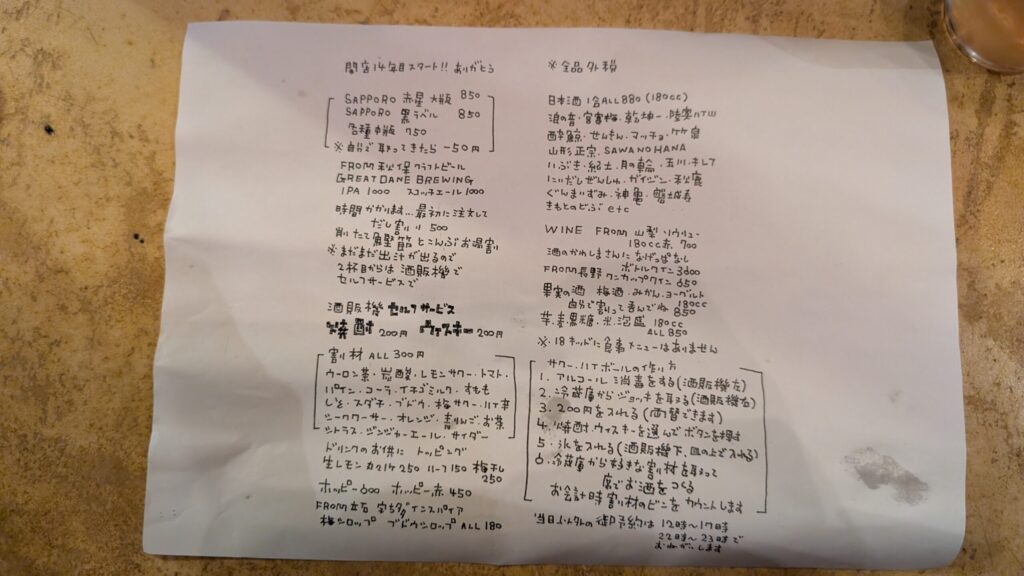 開店14年目スタート!! ありがとう
SAPPORO 赤星 大瓶 850
SAPPORO 黒ラベル 850
各種中瓶 750
※自分で取ってきたら -50円
FROM 秋保 クラフトビール
GREAT DANE BREWING
IPA 1000 スコッチエール 1000
時間かかります…最初に注文して
だし割り 500
削りたて 節とこんぶお湯割
※まだまだ出汁が出るので
2杯目からは 酒販機で
セルフサービスで
酒販機 セルフサービス
焼酎 200円 ウイスキー 200円
割り材 ALL 300円
ウーロン茶・炭酸・レモンサワー・トマト・
パイン・コーラ・イチゴミルク・すもも
しそ・スダチ・ブドウ・梅サワー・
シークワーサー・オレンジ・青りんご・お茶
シトラス・ジンジャーエール・サイダー
ドリンクのお供に トッピング
生レモン カットハイ 250 ハーフ 150 梅干し
250
ホッピー 600 ホッピー赤 450
FROM 立石 宇ち多゛インスパイア
梅シロップ ブドウシロップ ALL 180
※全品外税
日本酒 1合 ALL 880 (180cc)
浪の音・宮寒梅・乾坤一・陸奥八仙
酔鯨・せんきん・マッチョ・竹泉
山形正宗・SAWANOHANA
いぶき・紀土・月の輪・玉川・
にいだしぜんしゅ・ガイジン・秋鹿
ぐんまいずみ・神亀・磐城寿
きもとのどぶ etc
WINE FROM 山梨 ソリュー
180cc 赤 700
酒のかわしまさんに なげっぱなし
ボトルワイン 3600
FROM 長野 ワンカップワイン 650
果実の酒 梅酒・みかん・ヨーグルト
自分で割って呑んでね 180cc 850
芋・麦・黒糖・米・泡盛 180cc
ALL 850
※18キッドに食事メニューはありません
サワー・ハイボールの作り方
1. アルコール消毒をする(酒販機左)
2. 冷蔵庫からジョッキを取る(酒販機左)
3. 200円を入れる (両替できます)
4. 焼酎・ウィスキーを選んでボタンを押す
5. 氷を入れる(酒販機下、皿の上で入れる)
6. 冷蔵庫から好きな割り材を取って
席でお酒をつくる
お会計時割り材のビンをカウントします
当日 の御予約は 12時〜17時
22時〜23時で
おねがいします